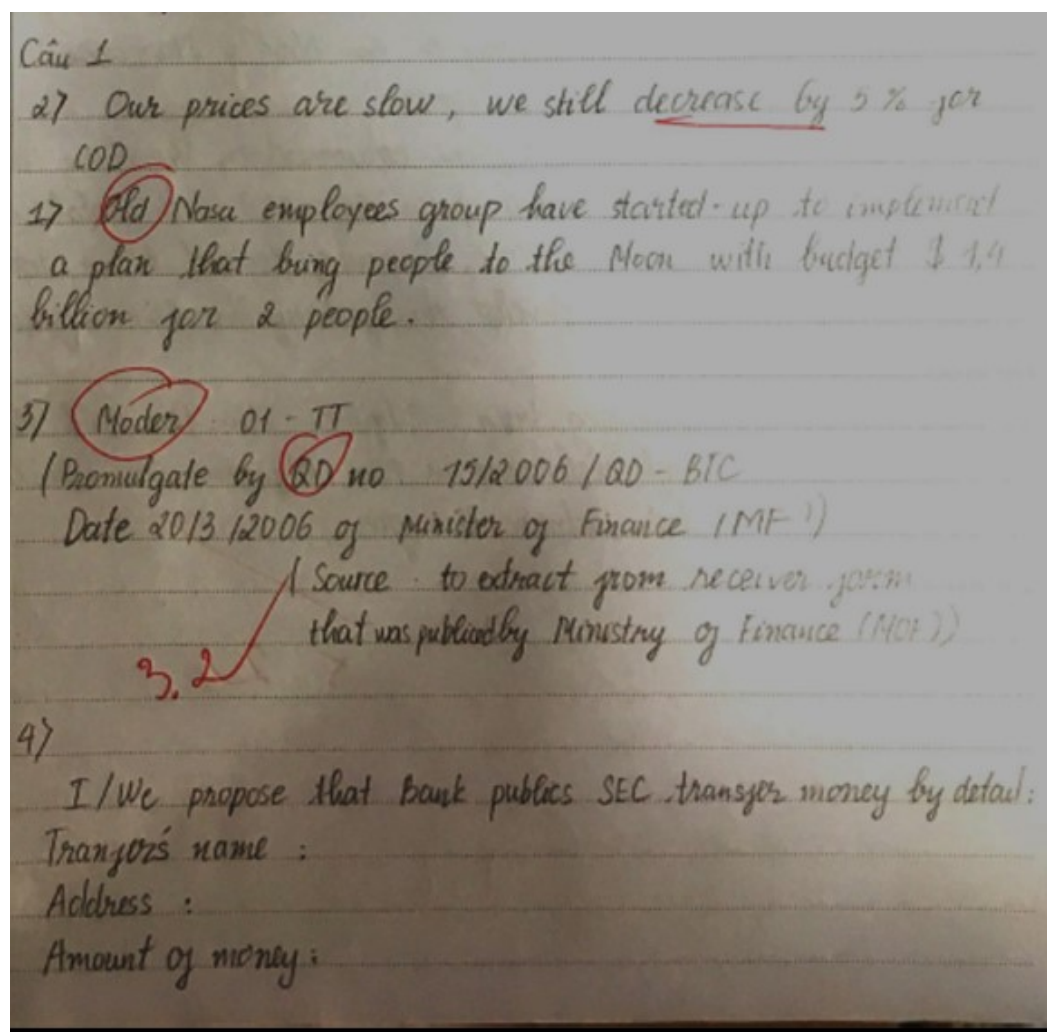 Câu 1
2) Our prices are slow, we still decrease by 5% for
COD
1) Old Nasa employees group have started-up to implement
a plan that bring people to the Moon with budget $ 1,4
billion for 2 people.
3) Moder 01 - TT
(Promulgate by QD no 15/2006/QD-BTC
Date 20/3/2006 of Minister of Finance (MF))
(Source to extract from receiver form
that was publiced by Ministry of Finance (MOF))
3.2
4)
I/We propose that bank publics SEC transfer money by detail:
Tranfor's name :
Address :
Amount of money :